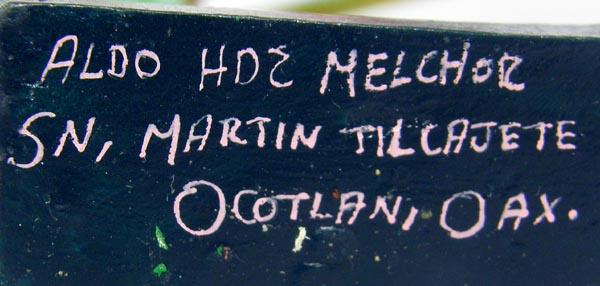 ALDO HDZ MELCHOR
SN, MARTIN TILCAJETE
OCOTLAN, OAX.